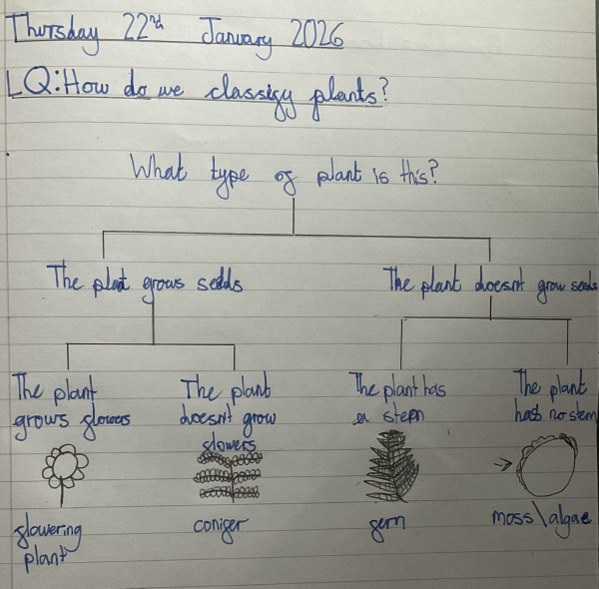 Thursday 22nd January 2026
LQ: How do we classify plants?
What type of plant is this?
The plant grows seeds
The plant doesn't grow seeds
The plant
grows flowers
The plant
doesn't grow
flowers
The plant has
a stem
The plant
has no stem
flowering
plant
conifer
fern
moss\algae